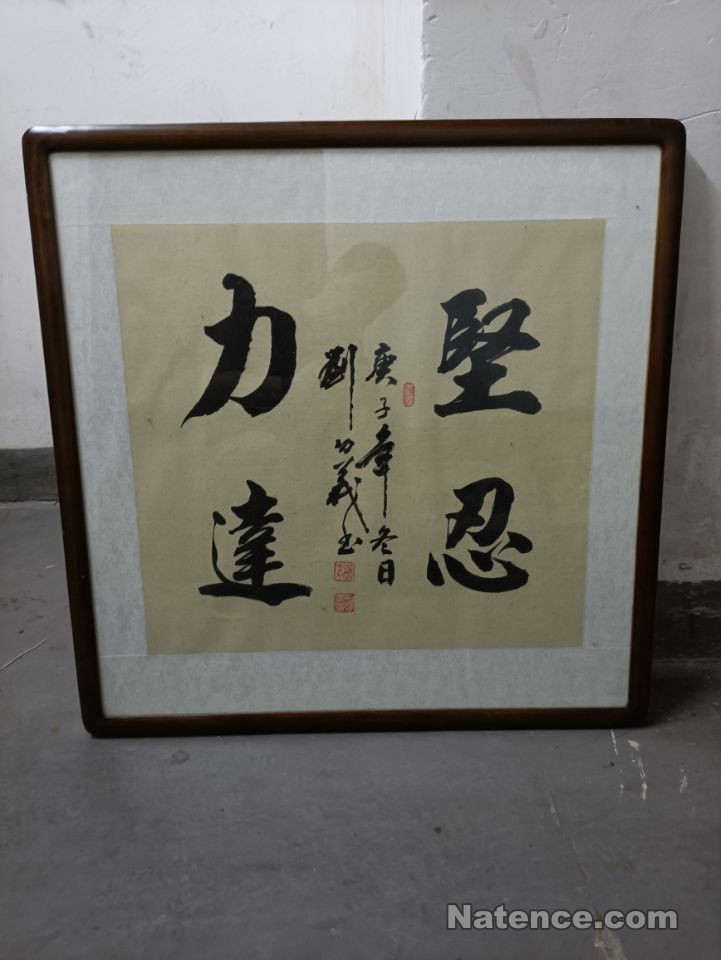 堅忍
力達
庚子年冬日
劉
Natence.com